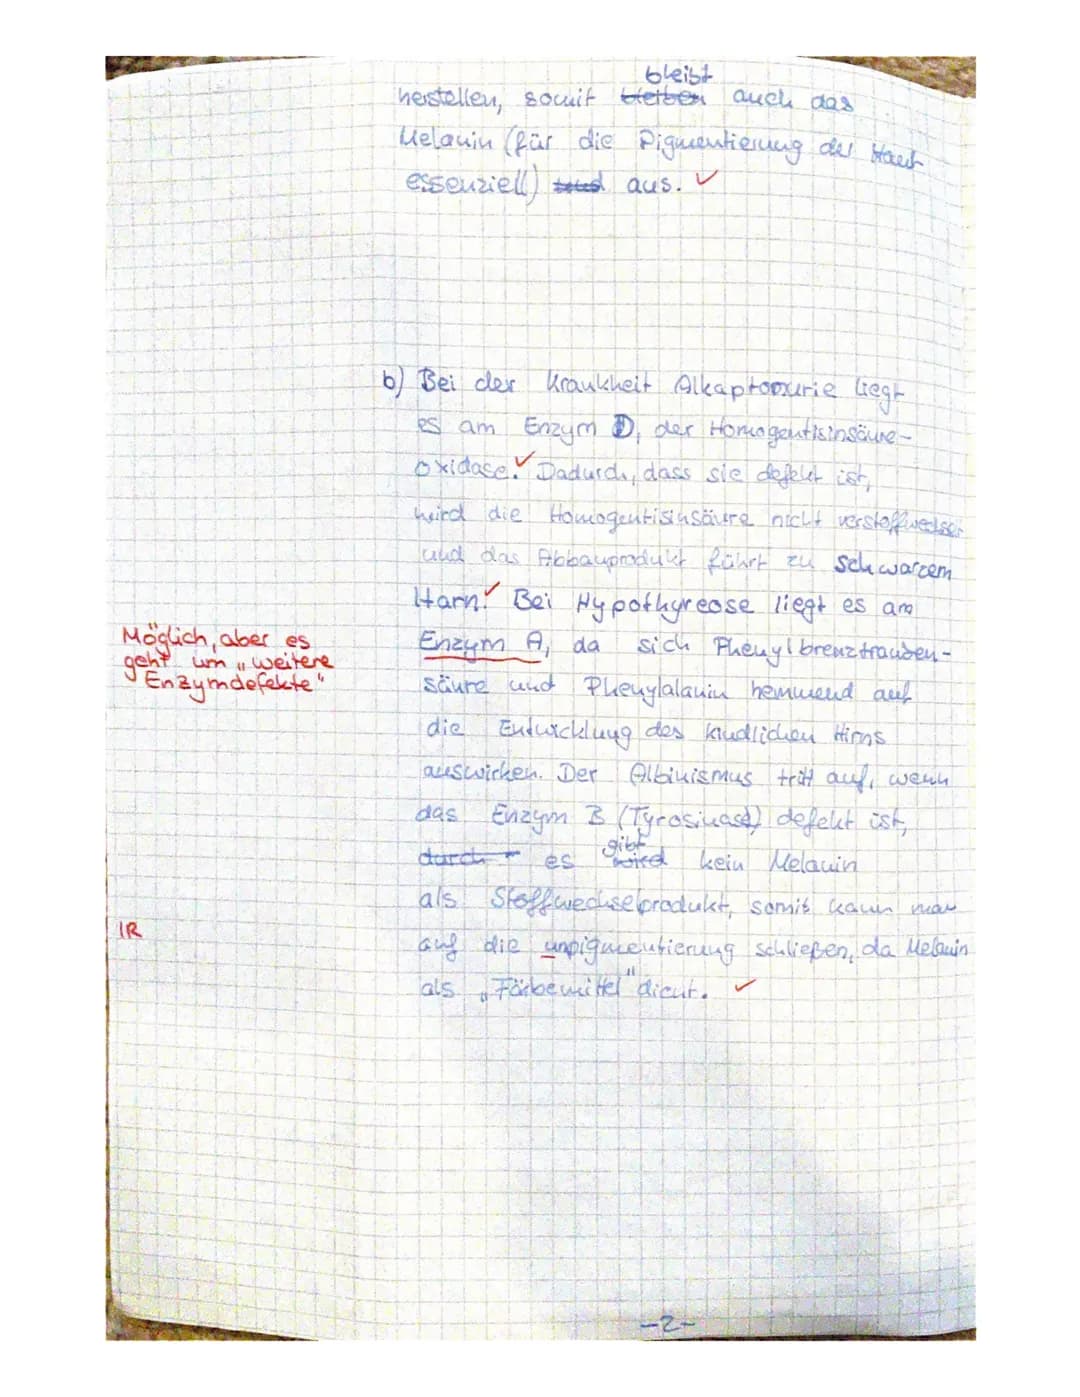 bleibt
herstellen, somit bleiben auch das
Melanin (für die Pigmentierung der Haut
essenziell) aus. ✓
b) Bei der Krankheit Alkaptonurie liegt
es am Enzym D, der Homogentisinsäure-
oxidase. ✓ Dadurch, dass sie defekt ist,
wird die Homogentisinsäure nicht verstoffwechselt
und das Abbauprodukt führt zu schwarzem
Harn. ✓ Bei Hypothyreose liegt es am
Möglich, aber es
geht um „weitere
Enzymdefekte"
Enzym A, da sich Phenylbrenztrauben-
säure und Phenylalanin hemmend auf
die Entwicklung des kindlichen Hirns
auswirken. Der Albinismus tritt auf, wenn
das Enzym B (Tyrosinase) defekt ist,
durch es gibt wird kein Melanin
als Stoffwechselprodukt, somit kann man
IR
auf die unpigmentierung schließen, da Melanin
als „Färbemittel" dient. ✓
-2-